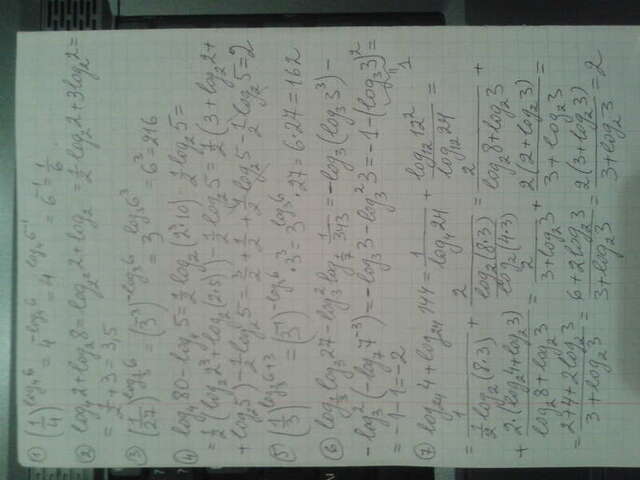 ① (1/4)^(log₄6) = 4^(-log₄6) = 4^(log₄6⁻¹) = 6⁻¹ = 1/6.
② log₄2 + log₂8 = log₂²2 + log₂ = 1/2 log₂2 + 3 log₂2 =
= 1/2 + 3 = 3,5
③ (1/27)^(log₃6) = (3⁻³)^(-log₃6) = 3^(log₃6³) = 6³ = 216
④ log₄80 - log₄5 = 1/2 log₂(2³·10) - 1/2 log₂5 =
= 1/2 (log₂2³ + log₂(2·5)) - 1/2 log₂5 = 1/2 (3 + log₂2 +
+ log₂5) - 1/2 log₂5 = 3/2 + 1/2 + 1/2 log₂5 - 1/2 log₂5 = 2
⑤ (1/3)^(log₃6+3) = (3⁻¹)^(-log₃6) · 3³ = 3^(log₃6) · 27 = 6·27 = 162
⑥ log₃ 27 - log₃² log_(1/7) 1/343 = -log₃(log₃3³) -
- log₃²(-log₇7⁻³) = -log₃3 - log₃²3 = -1 - (log₃3)² =
= -1 - 1 = -2
⑦ log₂₄4 + log₂₄144 = 1/log₄24 + log₁₂12²/log₁₂24 =
= 1/(1/2 log₂(8·3)) + 2/(log₂(8·3)/log₂(4·3)) = 2/(log₂8 + log₂3) +
+ 2·(log₂4 + log₂3)/(log₂8 + log₂3) = 2/(3 + log₂3) + 2(2 + log₂3)/(3 + log₂3) =
= (2+4+2log₂3)/(3 + log₂3) = (6 + 2log₂3)/(3 + log₂3) = 2(3 + log₂3)/(3 + log₂3) = 2